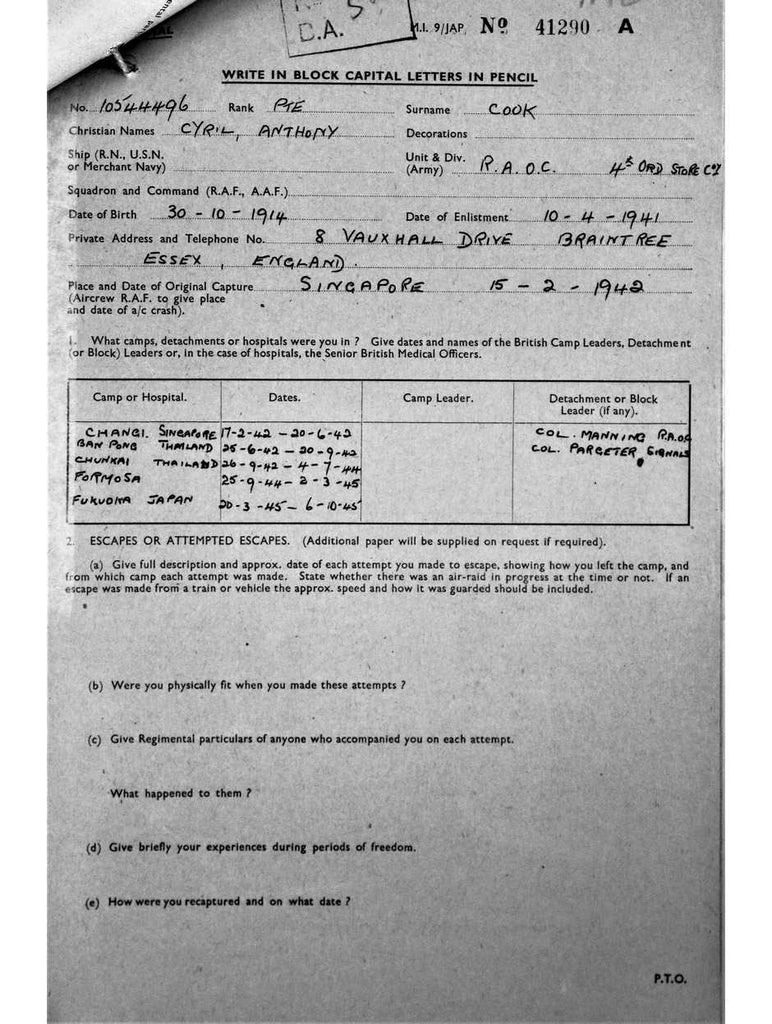 C.A.
M.I. 9/JAP. No 41290 A
WRITE IN BLOCK CAPITAL LETTERS IN PENCIL
No. 10544496 Rank PTE Surname COOK
Christian Names CYRIL, ANTHONY Decorations
Ship (R.N., U.S.N. or Merchant Navy)
Unit & Div. (Army) R.A.O.C. 4s ORD STORE Coy
Squadron and Command (R.A.F., A.A.F.)
Date of Birth 30 - 10 - 1914 Date of Enlistment 10 - 4 - 1941
Private Address and Telephone No. 8 VAUXHALL DRIVE BRAINTREE
ESSEX, ENGLAND.
Place and Date of Original Capture SINGAPORE 15 - 2 - 1942
(Aircrew R.A.F. to give place
and date of a/c crash).
1. What camps, detachments or hospitals were you in ? Give dates and names of the British Camp Leaders, Detachment
(or Block) Leaders or, in the case of hospitals, the Senior British Medical Officers.
Camp or Hospital. Dates. Camp Leader. Detachment or Block
Leader (if any).
CHANGI. SINGAPORE 17-2-42 - 20-6-42 COL. MANNING R.A.O.C
BAN PONG THAILAND 25-6-42 - 20-9-42 COL. PARGETER SIGNALS
CHUNKAI THAILAND 26-9-42 - 4-7-44
FORMOSA 25-9-44 - 2-3-45
FUKUOKA JAPAN 20-3-45 - 6-10-45
2. ESCAPES OR ATTEMPTED ESCAPES. (Additional paper will be supplied on request if required).
(a) Give full description and approx. date of each attempt you made to escape, showing how you left the camp, and
from which camp each attempt was made. State whether there was an air-raid in progress at the time or not. If an
escape was made from a train or vehicle the approx. speed and how it was guarded should be included.
(b) Were you physically fit when you made these attempts ?
(c) Give Regimental particulars of anyone who accompanied you on each attempt.
What happened to them ?
(d) Give briefly your experiences during periods of freedom.
(e) How were you recaptured and on what date ?
P.T.O.